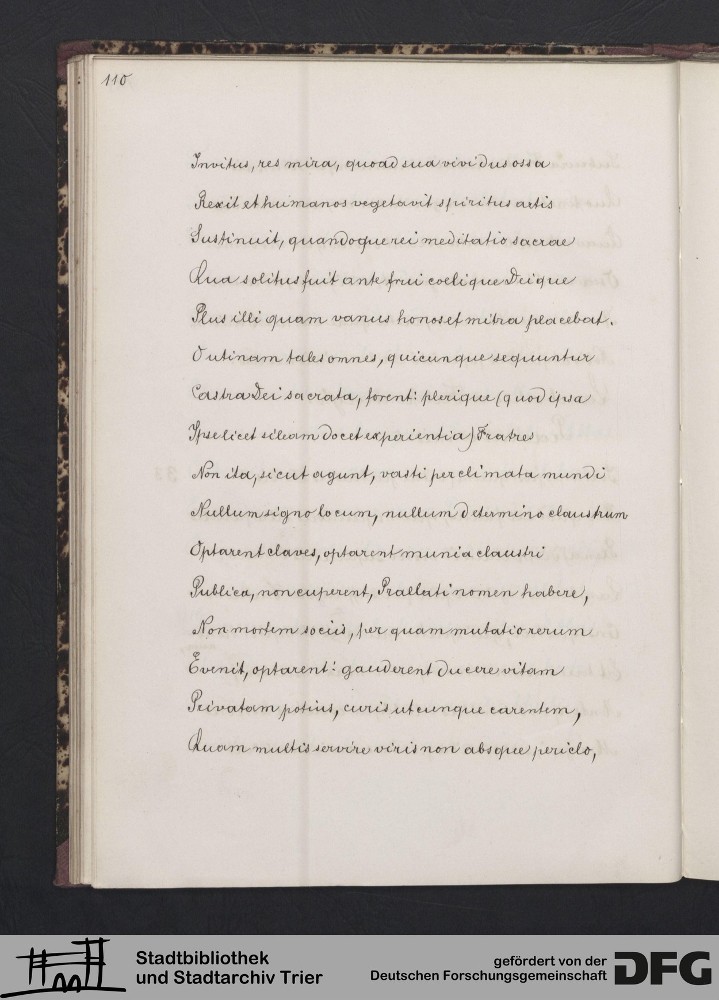 110
Invitus, res mira, quoad sua vividus ossa
Rexit et humanos vegetavit spiritus artis
Sustinuit, quandoque rei meditatio sacrae
Qua solitus fuit ante frui coelique Deique
Plus illi quam vanus honos et mitra placebat.
O utinam tales omnes, quicunque sequuntur
Castra Dei sacrata, forent: plerique (quod ipsa
Ipse licet sileam docet experientia) Fratres
Non ita, sicut agunt, vasti per climata mundi
Nullum signo locum, nullum determino claustrum
Optarent claves, optarent munia claustri
Publica, non cuperent, Praelati nomen habere,
Non mortem sociis, per quam mutatio rerum
Evenit, optarent: gauderent ducere vitam
Privatam potius, curis utcunque carentem,
Quam multis servire viris non absque periclo,
Stadtbibliothek
und Stadtarchiv Trier
gefördert von der
Deutschen Forschungsgemeinschaft
DFG